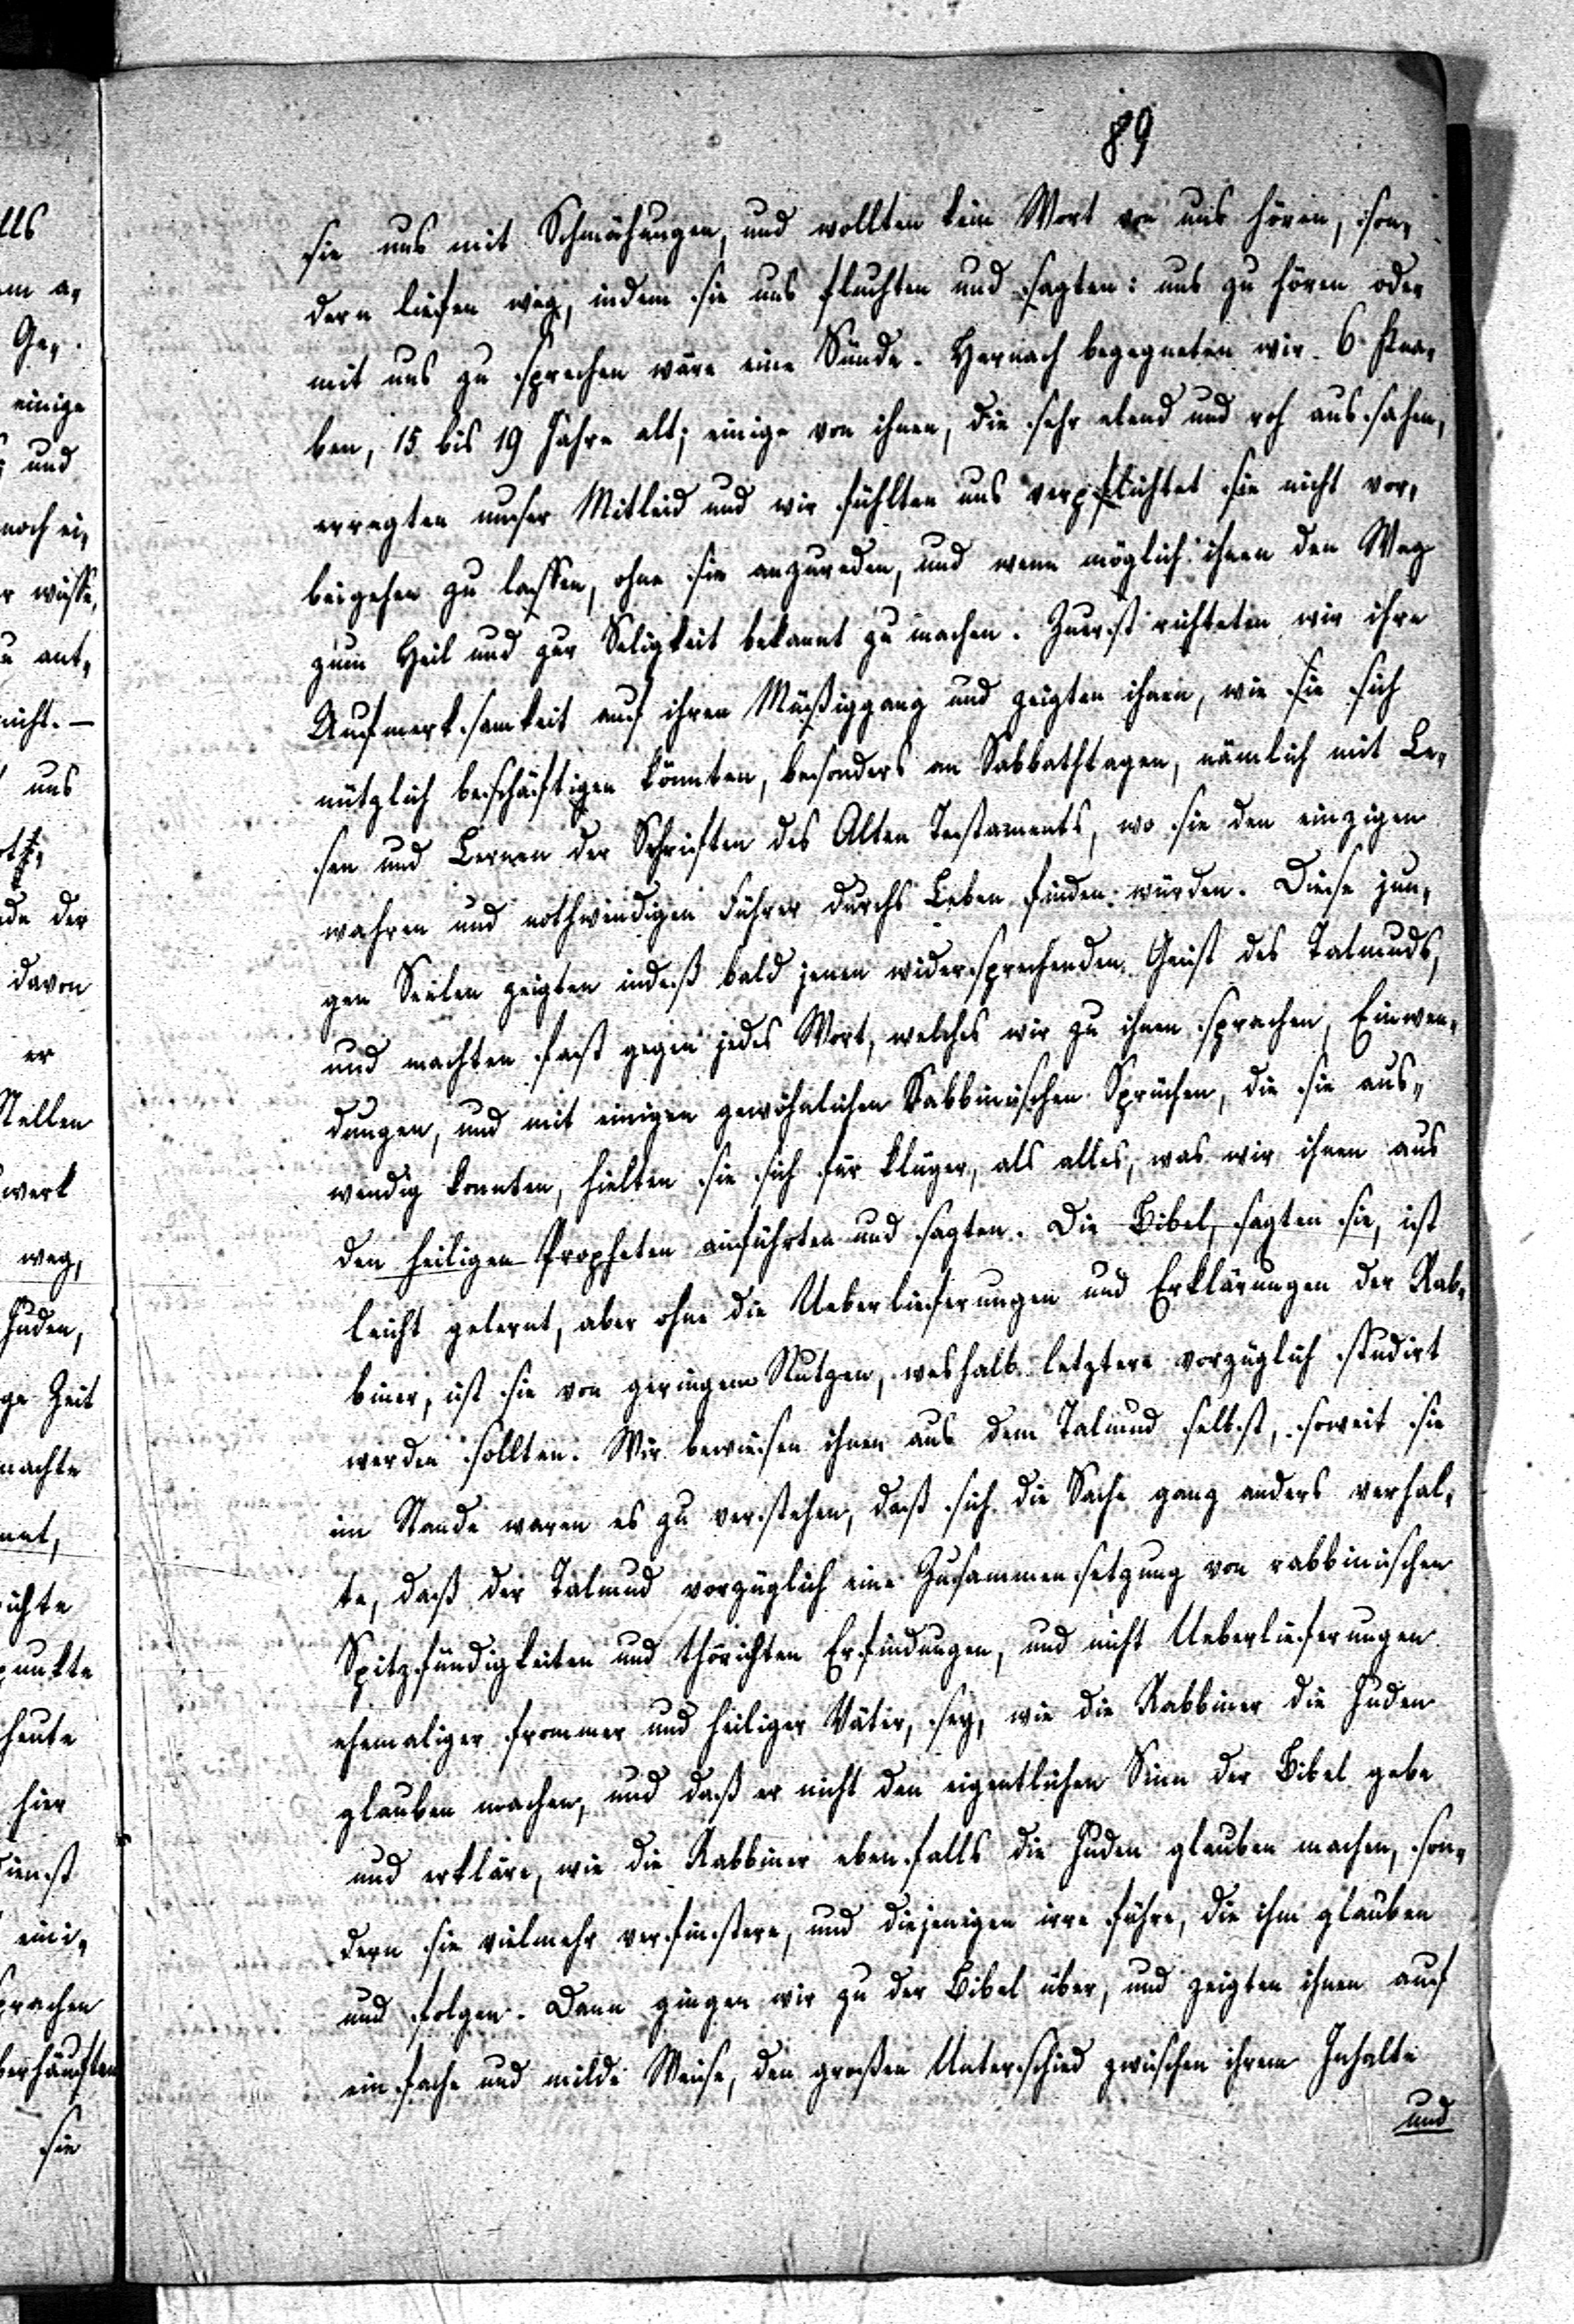 89
sie uns mit Schmähungen, und wollten kein Wort von uns hören, son„
dern liefen weg, indem sie uns fluchten und sagten: uns zu hören oder
mit uns zu sprechen wäre eine Sünde. Hernach begegneten wir 6 Kna„
ben, 15 bis 19 Jahre alt; einige von ihnen, die sehr elend und roh aussahen,
erregten unser Mitleid und wir fühlten uns verpflichtet sie nicht vor„
beigehen zu lassen, ohne sie anzureden, und wenn möglich ihnen den Weg
zum Heil und zur Seligkeit bekannt zu machen. Zuerst richteten wir ihre
Aufmerksamkeit auf ihren Müßiggang und zeigten ihnen, wie sie sich
nützlich beschäftigen könnten, besonders an Sabbathtagen, nämlich mit Le„
sen und Lernen der Schriften des Alten Testaments, wo sie den einzigen
wahren und nothwendigen Führer durchs Leben finden würden. Diese jun„
gen Seelen zeigten indeß bald jenen widersprechenden Geist des Talmuds,
und machten fast gegen jedes Wort, welches wir zu ihnen sprachen, Einwen„
dungen, und mit einigen gewöhnlichen Rabbinischen Sprüchen, die sie aus„
wendig konnten, hielten sie sich für klüger, als alles, was wir ihnen aus
den heiligen Propheten anführten und sagten. Die Bibel, sagten sie, ist
leicht gelernt, aber ohne die Ueberlieferungen und Erklärungen der Rab„
biner, ist sie von geringem Nutzen, weshalb letztere vorzüglich studirt
werden sollten. Wir bewiesen ihnen aus dem Talmud selbst, soweit sie
im Stande waren es zu verstehen, daß sich die Sache ganz anders verhal„
te, daß der Talmud vorzüglich eine Zusammensetzung von rabbinischen
Spitzfündigkeiten und thörichten Erfindungen, und nicht Ueberlieferungen
ehemaliger frommer und heiliger Väter, sey, wie die Rabbiner die Juden
glauben machen, und daß er nicht den eigentlichen Sinn der Bibel gebe
und erkläre, wie die Rabbiner ebenfalls die Juden glauben machen, son„
dern sie vielmehr verfinstere, und diejenigen irre führe, die ihm glauben
und folgen. Dann gingen wir zu der Bibel über, und zeigten ihnen auf
einfache und milde Weise, den großen Unterschied zwischen ihrem Inhalte
und